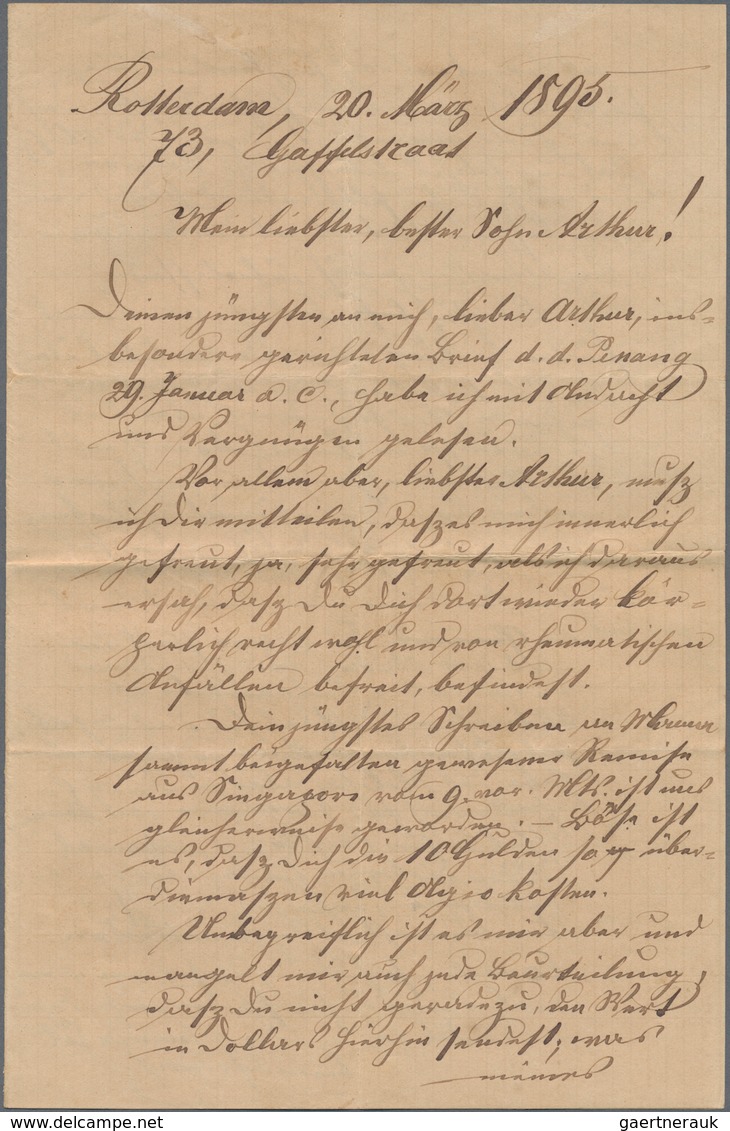 Rotterdam, 20. März 1895.
73, Gaffelstraat
Mein liebster, bester Sohn Arthur!
Deinen jüngsten an mich, lieber Arthur, ins-
besondere gerichteten Brief d. d. Penang
29. Januar a. c., habe ich mit Andacht
und Vergnügen gelesen.
Vor allem aber, liebster Arthur, musz
ich Dir mitteilen, dasz es mich innerlich
gefreut, ja, sehr gefreut, als ich daraus
ersah, dasz Du Dich dort wieder kör-
perlich recht wohl und von rheumatischen
Anfällen befreit, befindest.
Dein jüngstes Schreiben an Mama
sammt beigefalten gewesener Remise
aus Singapore vom 9. vor. Mts. ist uns
gleicherweise geworden. – Böse ist
es, dasz Dich die 10 Gulden so über-
diemaszen viel Agio kosten.
Unbegreiflich ist es mir aber und
mangelt mir auch jede Beurteilung,
dasz Du nicht geradezu, den Wert
in Dollars hierhin sendest; was
meines
delcampe.net
gaertnerauk